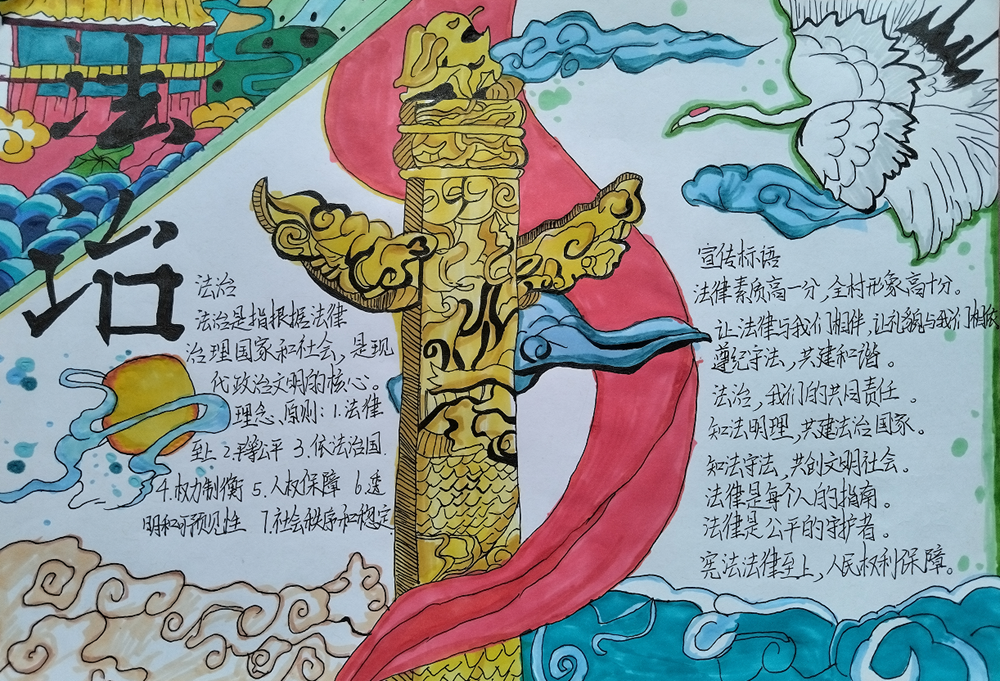 法治
法治
法治是指根据法律
治理国家和社会，是现
代政治文明的核心。
理念、原则：1.法律
至上 2.平等公平 3.依法治国
4.权力制衡 5.人权保障 6.透
明和可预见性 7.社会秩序和稳定
宣传标语
法律素质高一分，全村形象高十分。
让法律与我们相伴，让礼貌与我们相依
遵纪守法，共建和谐。
法治，我们的共同责任。
知法明理，共建法治国家。
知法守法，共创文明社会。
法律是每个人的指南。
法律是公平的守护者。
宪法法律至上，人民权利保障。